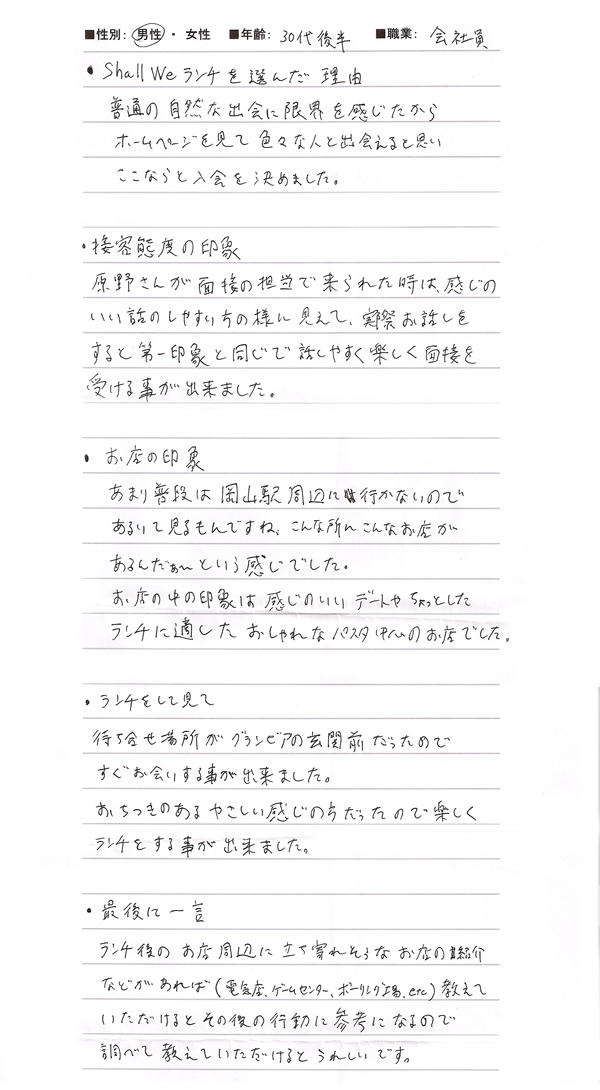 ■性別: 男性 ・ 女性 ■年齢: 30代後半 ■職業: 会社員
・Shall We ランチを選んだ理由
普通の自然な出会に限界を感じたから
ホームページを見て色々な人と出会えると思い
ここならと入会を決めました。
・接客態度の印象
原野さんが面接の担当で来られた時は、感じの
いい話のしやすい方の様に見えて、実祭お話しを
すると第一印象と同じで話しやすく楽しく面接を
受ける事が出来ました。
・お店の印象
あまり普段は岡山駅周辺に行かないので
あるいて見るもんですね、こんな所にこんなお店が
あるんだぁ〜という感じでした。
お店の中の印象は感じのいいデートやちょっとした
ランチに適したおしゃれなパスタ中心のお店でした。
・ランチをして見て
待ち合せ場所がグランビアの玄関前だったので
すぐお会いする事が出来ました。
おちつきのあるやさしい感じの方だったので楽しく
ランチをする事が出来ました。
・最後に一言
ランチ後のお店周辺に立ち寄れそうなお店の紹介
などがあれば(電気店、ゲームセンター、ボーリング場、etc)教えて
いただけるとその後の行動に参考になるので
調べて教えていただけるとうれしいです。